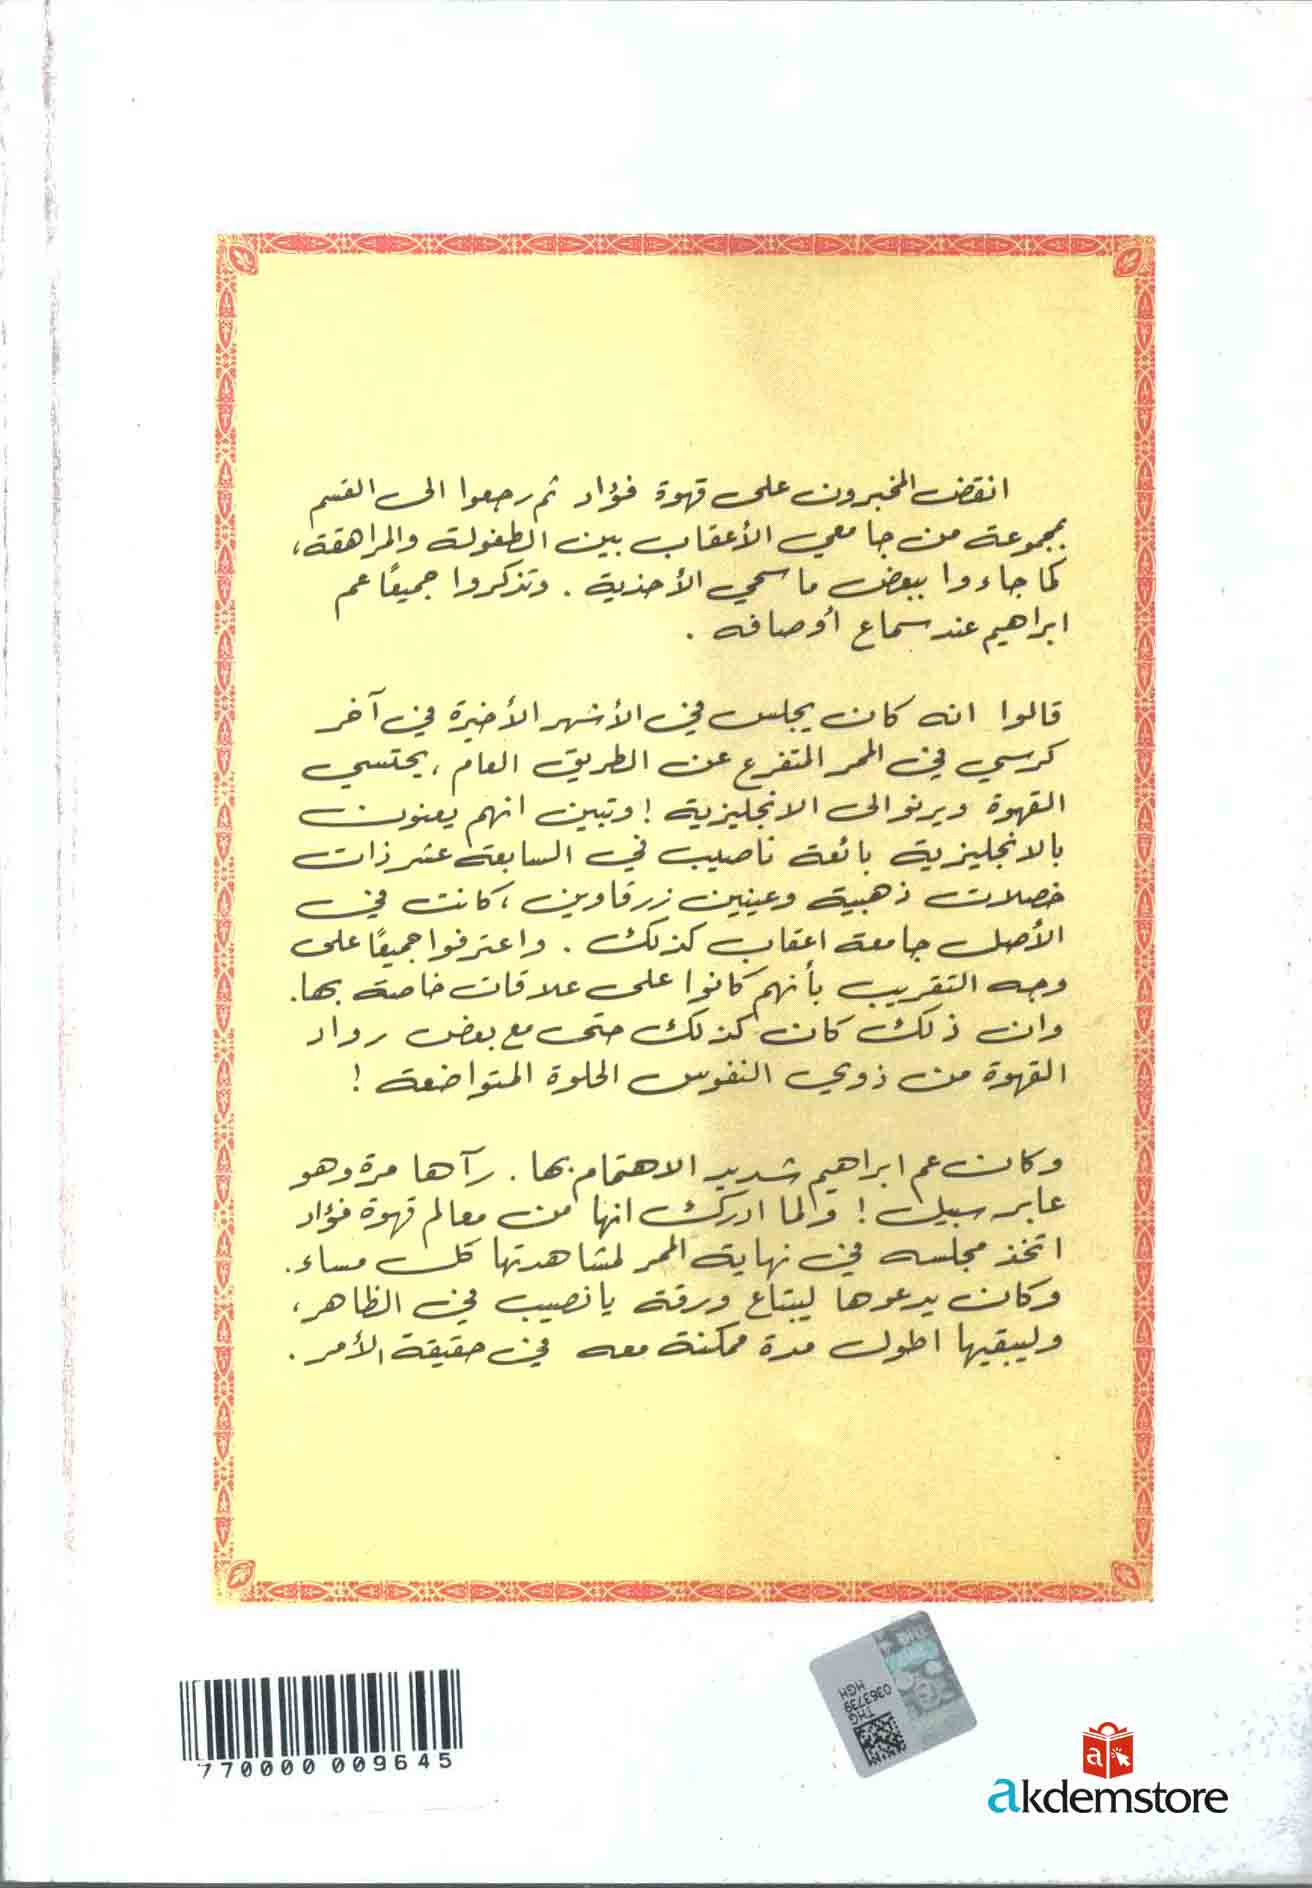 انقض المخبرون على قهوة فؤاد ثم رجعوا الى القسم
بمجموعة من جامعي الأعقاب بين الطفولة والمراهقة،
كما جاءوا ببعض ماسحي الأحذية . وتذكروا جميعًا عم
ابراهيم عند سماع أوصافه .
قالوا انه كان يجلس في الأشهر الأخيرة في آخر
كرسي في الممر المتفرع عن الطريق العام ، يحتسي
القهوة ويرنو الى الانجليزية ! وتبين انهم يعنون
بالانجليزية بائعة ناصيب في السابعة عشر ذات
خصلات ذهبية وعينين زرقاوين ، كانت في
الأصل جامعة اعقاب كذلك . واعترفوا جميعًا على
وجه التقريب بأنهم كانوا على علاقات خاصة بها .
وان ذلك كان كذلك حتى مع بعض رواد
القهوة من ذوي النفوس الحلوة المتواضعة !
وكان عم ابراهيم شديد الاهتمام بها . رآها مرة وهو
عابر سبيل ! ولما ادرك انها من معالم قهوة فؤاد
اتخذ مجلسه في نهاية الممر لمشاهدتها كل مساء .
وكان يدعوها ليبتاع ورقة يا نصيب في الظاهر ،
وليبقيها اطول مدة ممكنة معه في حقيقة الأمر .
THG
0363739
HGH
770000 009645
a
akdemstore